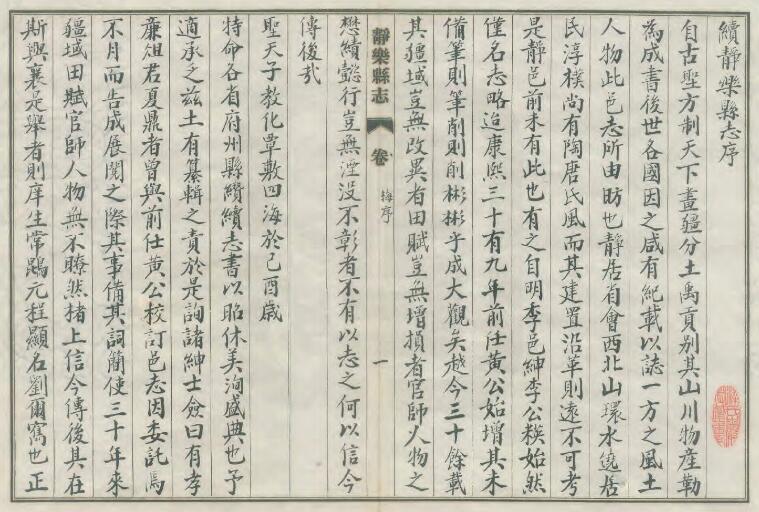 續靜樂縣志序
自古聖方制天下畫疆分土禹貢别其山川物產勒
為成書後世各國因之咸有紀載以誌一方之風土
人物此邑志所由昉也靜居省會西北山環水繞居
民淳樸尚有陶唐氏風而其建置沿革則遠不可考
是靜邑前未有此也有之自明季邑紳李公𥞇始然
僅名志略迨康熙三十有九年前任黃公始增其未
備筆則筆削則削彬彬乎成大觀矣越今三十餘載
其疆域豈無改異者田賦豈無增損者官師人物之
靜樂縣志
卷
梅序
一
懋績懿行豈無湮没不彰者不有以志之何以信今
傳後哉
聖天子教化覃敷四海於己酉歲
特命各省府州縣纘續志書以昭休美洵盛典也予
適承之兹土有纂輯之責於是詢諸紳士僉曰有孝
廉俎君夏鼎者曾與前任黃公校訂邑志因委託焉
不月而告成展閱之際其事備其詞簡使三十年來
疆域田賦官師人物無不瞭然楮上信今傳後其在
斯與襄是舉者則庠生常鵾元程顯名劉爾寯也正